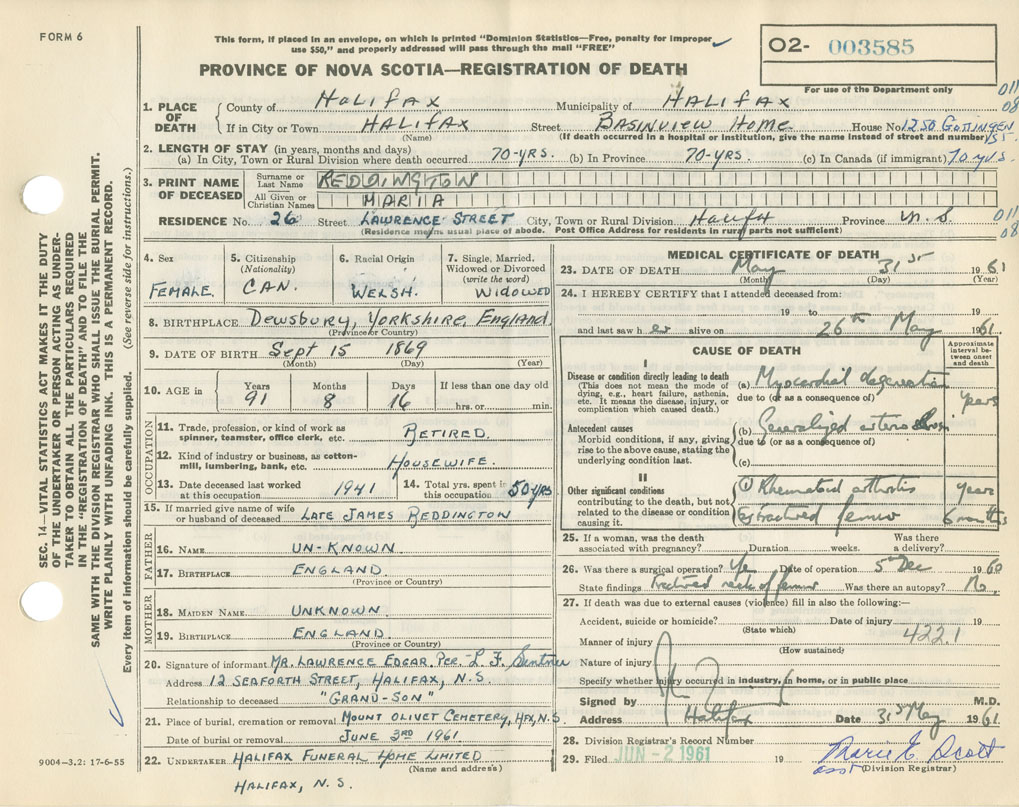 FORM 6
This form, if placed in an envelope, on which is printed "Dominion Statistics—Free, penalty for improper
use $50," and properly addressed will pass through the mail "FREE"
O2- 003585
For use of the Department only
PROVINCE OF NOVA SCOTIA—REGISTRATION OF DEATH
011
08
1. PLACE OF DEATH
County of HALIFAX Municipality of HALIFAX
If in City or Town HALIFAX Street BASINVIEW HOME House No. 1250 GOTTINGEN ST.
(Name) (If death occurred in a hospital or institution, give the name instead of street and number)
2. LENGTH OF STAY (in years, months and days)
(a) In City, Town or Rural Division where death occurred 70-YRS. (b) In Province 70-YRS. (c) In Canada (if immigrant) 70 yrs.
3. PRINT NAME OF DECEASED
Surname or Last Name REDDINGTON
All Given or Christian Names MARIA
RESIDENCE No. 26 Street LAWRENCE STREET City, Town or Rural Division Halifax Province N.S.
(Residence means usual place of abode. Post Office Address for residents in rural parts not sufficient)
011
08
4. Sex FEMALE.
5. Citizenship (Nationality) CAN.
6. Racial Origin WELSH.
7. Single, Married, Widowed or Divorced (write the word) WIDOWED
8. BIRTHPLACE Dewsbury, Yorkshire, England
(Province or Country)
9. DATE OF BIRTH Sept 15 1869
(Month) (Day) (Year)
10. AGE in Years 91 Months 8 Days 16 If less than one day old
hrs. or min.
OCCUPATION
11. Trade, profession, or kind of work as spinner, teamster, office clerk, etc. RETIRED.
12. Kind of industry or business, as cotton-mill, lumbering, bank, etc. HOUSEWIFE.
13. Date deceased last worked at this occupation 1941 14. Total yrs. spent in this occupation 50-YRS
15. If married give name of wife or husband of deceased LATE JAMES REDDINGTON
FATHER
16. NAME UN-KNOWN.
17. BIRTHPLACE ENGLAND
(Province or Country)
MOTHER
18. MAIDEN NAME UNKNOWN.
19. BIRTHPLACE ENGLAND.
(Province or Country)
20. Signature of informant MR. LAWRENCE EDGAR. Per- L. F.
Address 12 SEAFORTH STREET, HALIFAX, N.S.
Relationship to deceased "GRAND-SON"
21. Place of burial, cremation or removal MOUNT OLIVET CEMETERY, HFX, N.S.
Date of burial or removal JUNE 3RD 1961
22. UNDERTAKER HALIFAX FUNERAL HOME LIMITED
(Name and address)
HALIFAX, N.S.
MEDICAL CERTIFICATE OF DEATH
23. DATE OF DEATH May 31st 1961
(Month) (Day) (Year)
24. I HEREBY CERTIFY that I attended deceased from:
19 to 19
and last saw her alive on 26th May 1961.
CAUSE OF DEATH
Approximate interval between onset and death
I
Disease or condition directly leading to death
(This does not mean the mode of dying, e.g., heart failure, asthenia, etc. It means the disease, injury, or complication which caused death.)
(a) Myocardial degeneration years
due to (or as a consequence of)
Antecedent causes
Morbid conditions, if any, giving rise to the above cause, stating the underlying condition last.
(b) Generalized arterio
due to (or as a consequence of)
(c)
II
Other significant conditions
contributing to the death, but not related to the disease or condition causing it.
(1) Rheumatoid arthritis years
fractured femur 6 months
25. If a woman, was the death associated with pregnancy? Duration weeks. Was there a delivery?
26. Was there a surgical operation? Yes Date of operation 5th Dec 1960
State findings Fractured neck of femur Was there an autopsy? No.
27. If death was due to external causes (violence) fill in also the following:—
Accident, suicide or homicide? Date of injury 19
(State which)
4221
Manner of injury
(How sustained)
Nature of injury
Specify whether injury occurred in industry, in home, or in public place
Signed by M.D.
Address Halifax Date 31st May 1961.
28. Division Registrar's Record Number
29. Filed JUN -2 1961 19 Marie E Scott
asst (Division Registrar)
SEC. 14—VITAL STATISTICS ACT MAKES IT THE DUTY
OF THE UNDERTAKER OR PERSON ACTING AS UNDER-
TAKER TO OBTAIN ALL THE PARTICULARS REQUIRED
IN THE "REGISTRATION OF DEATH" AND TO FILE THE
SAME WITH THE DIVISION REGISTRAR WHO SHALL ISSUE THE BURIAL PERMIT.
WRITE PLAINLY WITH UNFADING INK. THIS IS A PERMANENT RECORD.
Every item of information should be carefully supplied. (See reverse side for instructions.)
9004-3.2: 17-6-55